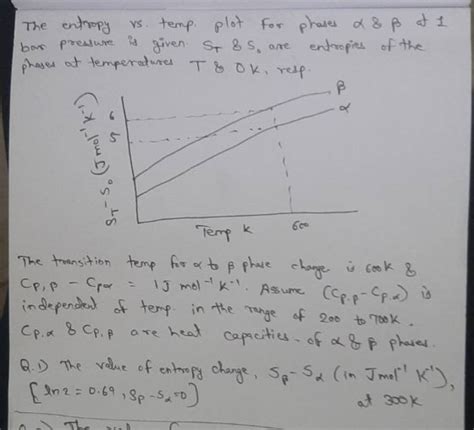 The entropy vs. temp. plot for phases α & β at 1
bar pressure is given. S_T & S_0 are entropies of the
phases at temperatures T & 0 K, resp.
β
α
6
5
S_T - S_0 (J mol⁻¹ K⁻¹)
Temp K
600
The transition temp for α to β phase change is 600K &
C_P,β - C_Pα = 1 J mol⁻¹ K⁻¹. Assume (C_P,β - C_P,α) is
independent of temp. in the range of 200 to 700K.
C_P,α & C_P,β are heat capacities of α & β phases.
Q.1) The value of entropy change, S_β - S_α (in J mol⁻¹ K⁻¹),
[ln 2 = 0.69, S_β - S_α = 0] at 300K